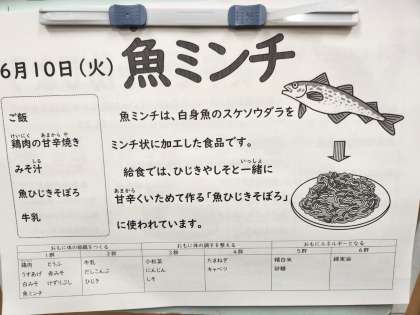 6月10日(火) 魚ミンチ
ご飯
鶏肉の甘辛焼き
みそ汁
魚ひじきそぼろ
牛乳
魚ミンチは、白身魚のスケソウダラを
ミンチ状に加工した食品です。
給食では、ひじきやしそと一緒に
甘辛くいためて作る「魚ひじきそぼろ」
に使われています。
おもに体の組織をつくる おもに体の調子を整える おもにエネルギーとなる
1群 2群 3群 4群 5群 6群
鶏肉 とうふ 牛乳 小松菜 たまねぎ 精白米 綿実油
うすあげ 赤みそ だしこんぶ にんじん キャベツ 砂糖
白みそ けずりぶし ひじき しそ
魚ミンチ